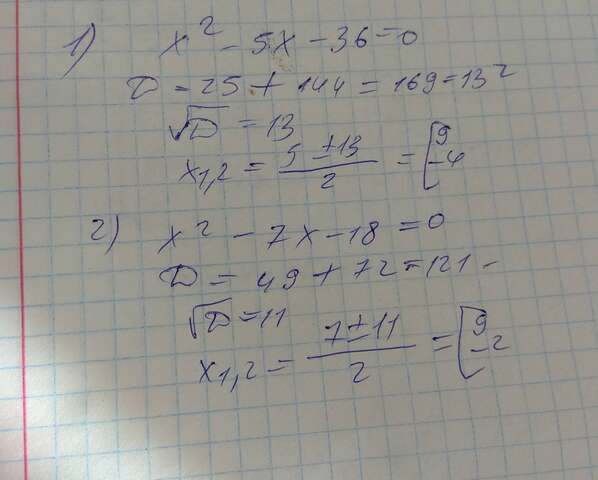 1) x² - 5x - 36 = 0
D = 25 + 144 = 169 = 13²
√D = 13
x1,2 = (5 ± 13)/2 = [9 -4
2) x² - 7x - 18 = 0
D = 49 + 72 = 121 -
√D = 11
x1,2 = (7 ± 11)/2 = [9 -2